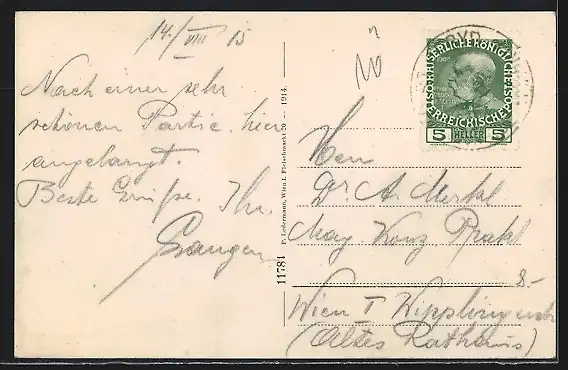 14/VIII 15
Nach einer sehr
schönen Partie hier
angelangt.
Beste Grüße. Ihr
Langer
P. Ledermann, Wien I. Fleischmarkt 20 — 1914.
11784
KAISERLICHE KÖNIGLICHE
ÖSTERREICHISCHE
1908
5 HELLER 5
Herrn
Dr. A. Merkl
Mag
Wien I Wipplingerstr
8-
(Altes Rathaus)